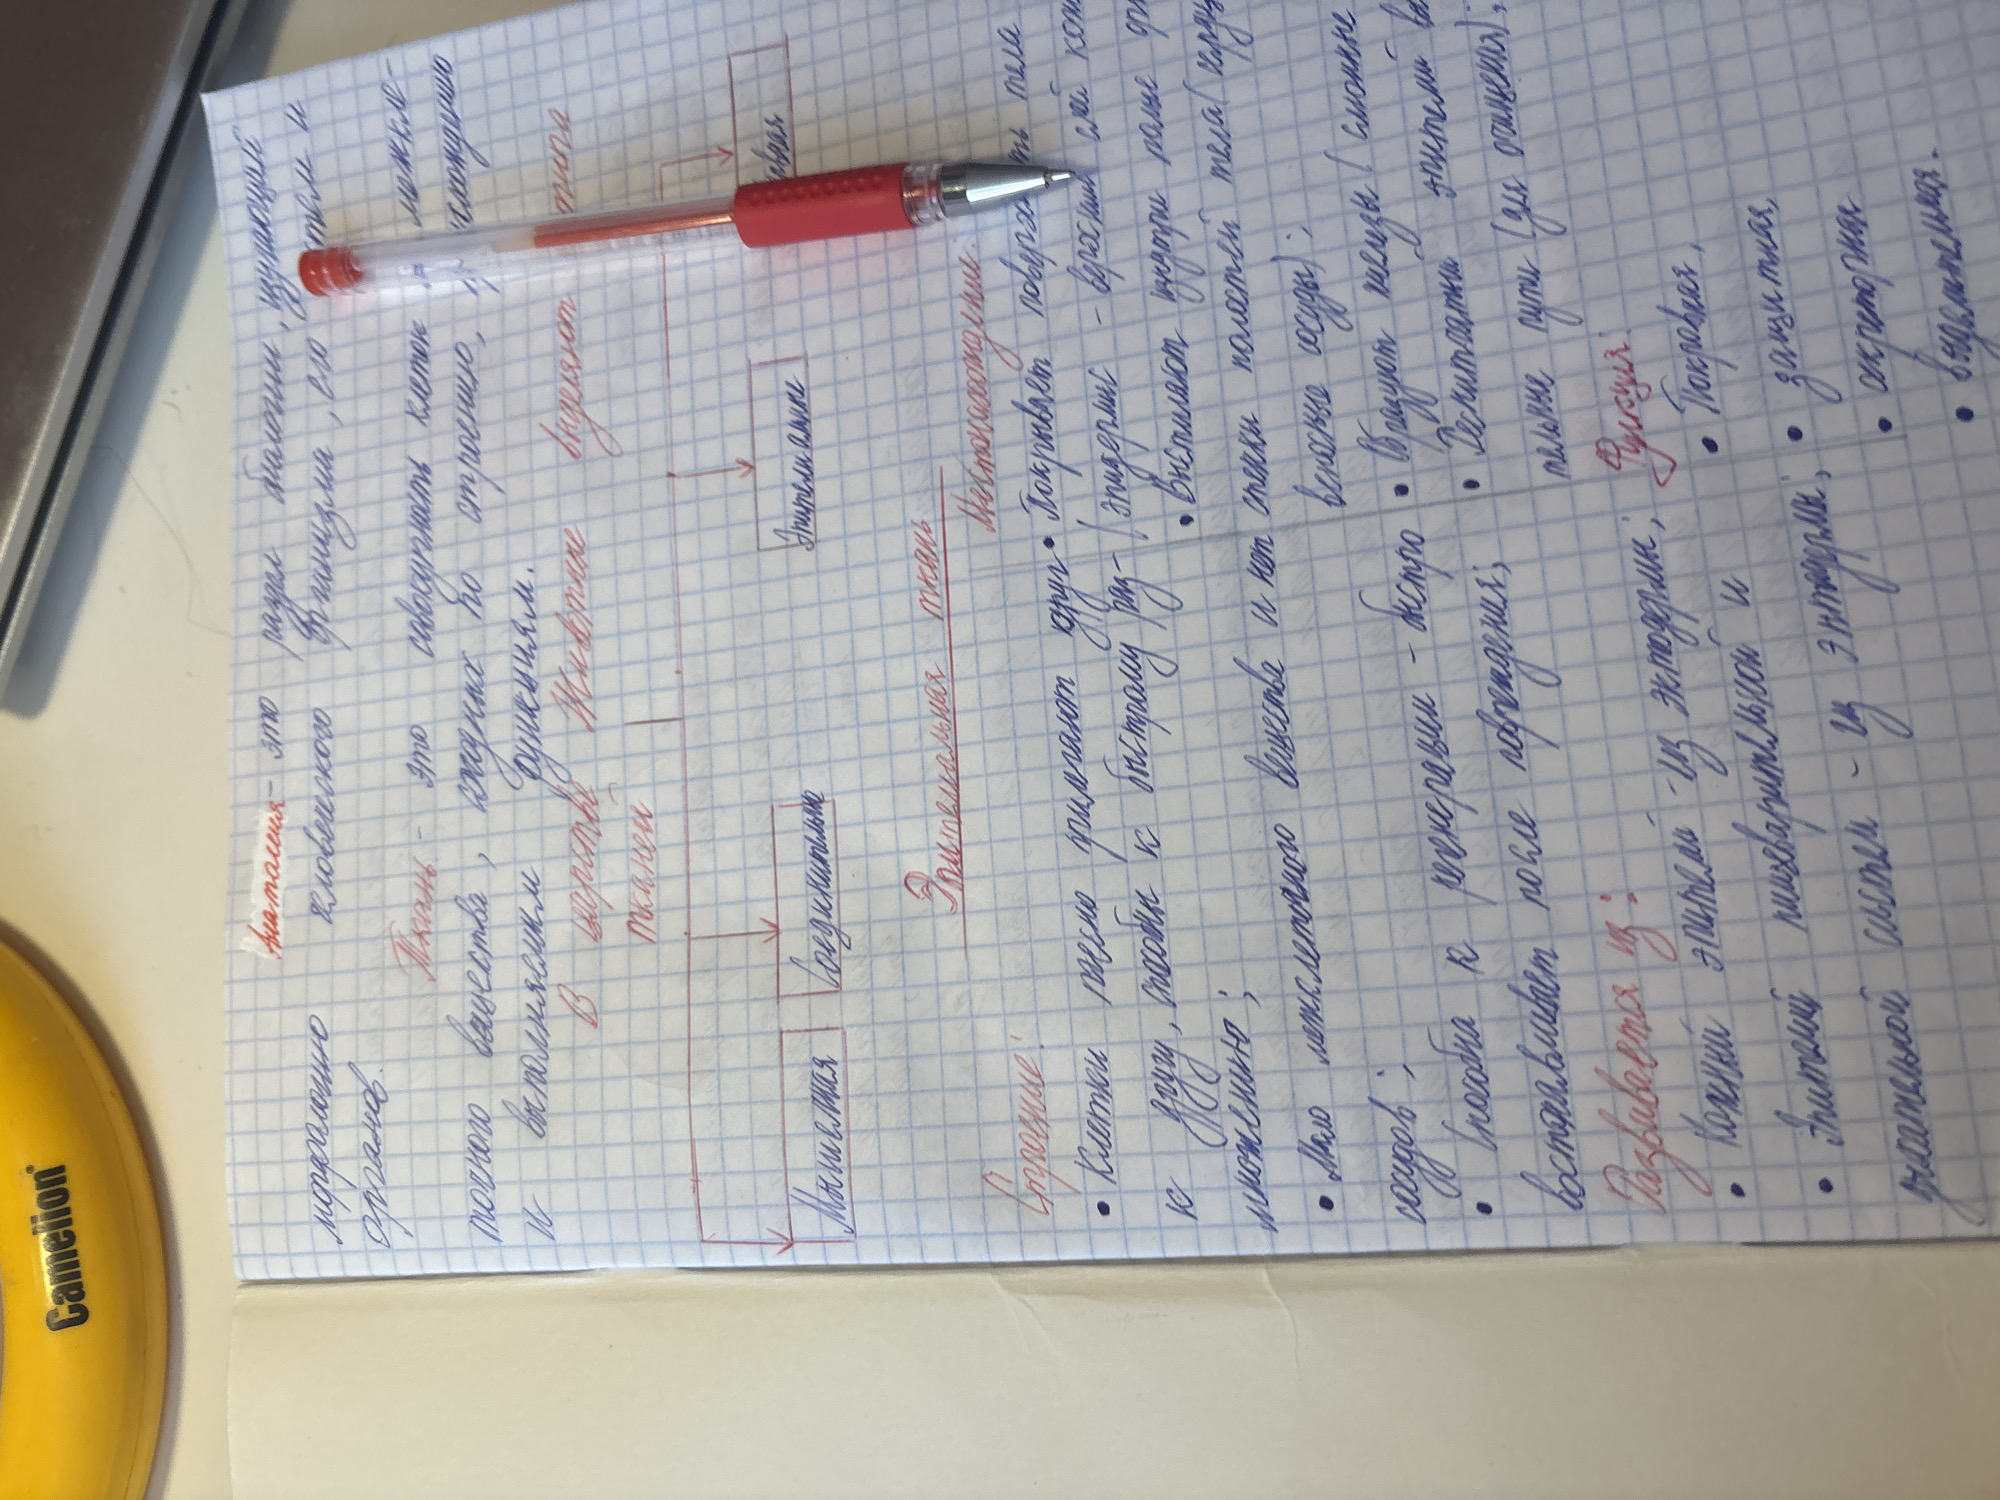 Анатомия - это раздел биологии, изучающий
морфологию человеческого организма, его систем и
органов.
Ткань - это совокупность клеток и межкле-
точного вещества, сходных по строению,
и выполняемым функциям.
В царстве Животные выделяют типа
тканей
Мышечная
Соединительные
Эпителианые
Эпителиальная ткань
Строение:
• Клетки тесно прилегают друг
к другу, способны к быстрому раз-
множению;
• Мало межклеточного вещества и нет
сосудов;
• Способна к регенерации - быстро
востанавливает после повреждения;
Развивается из:
• Кожный эпителий - из эктодермы;
• Эпителий пищеварительной и
дыхательной систем - из энтодермы;
Местонахождение:
• Покрывает поверхность тела
(эпидермис - верхний слой
• Выстилает внутри полые
стенки полостей тела
веносные сосуды);
• Образует железы (слюнные
• Реснитчатый эпителий
тельные пути (для очищения);
Функция:
• Покровная,
• защитная,
• секреторная
• выделительная.
Camelion